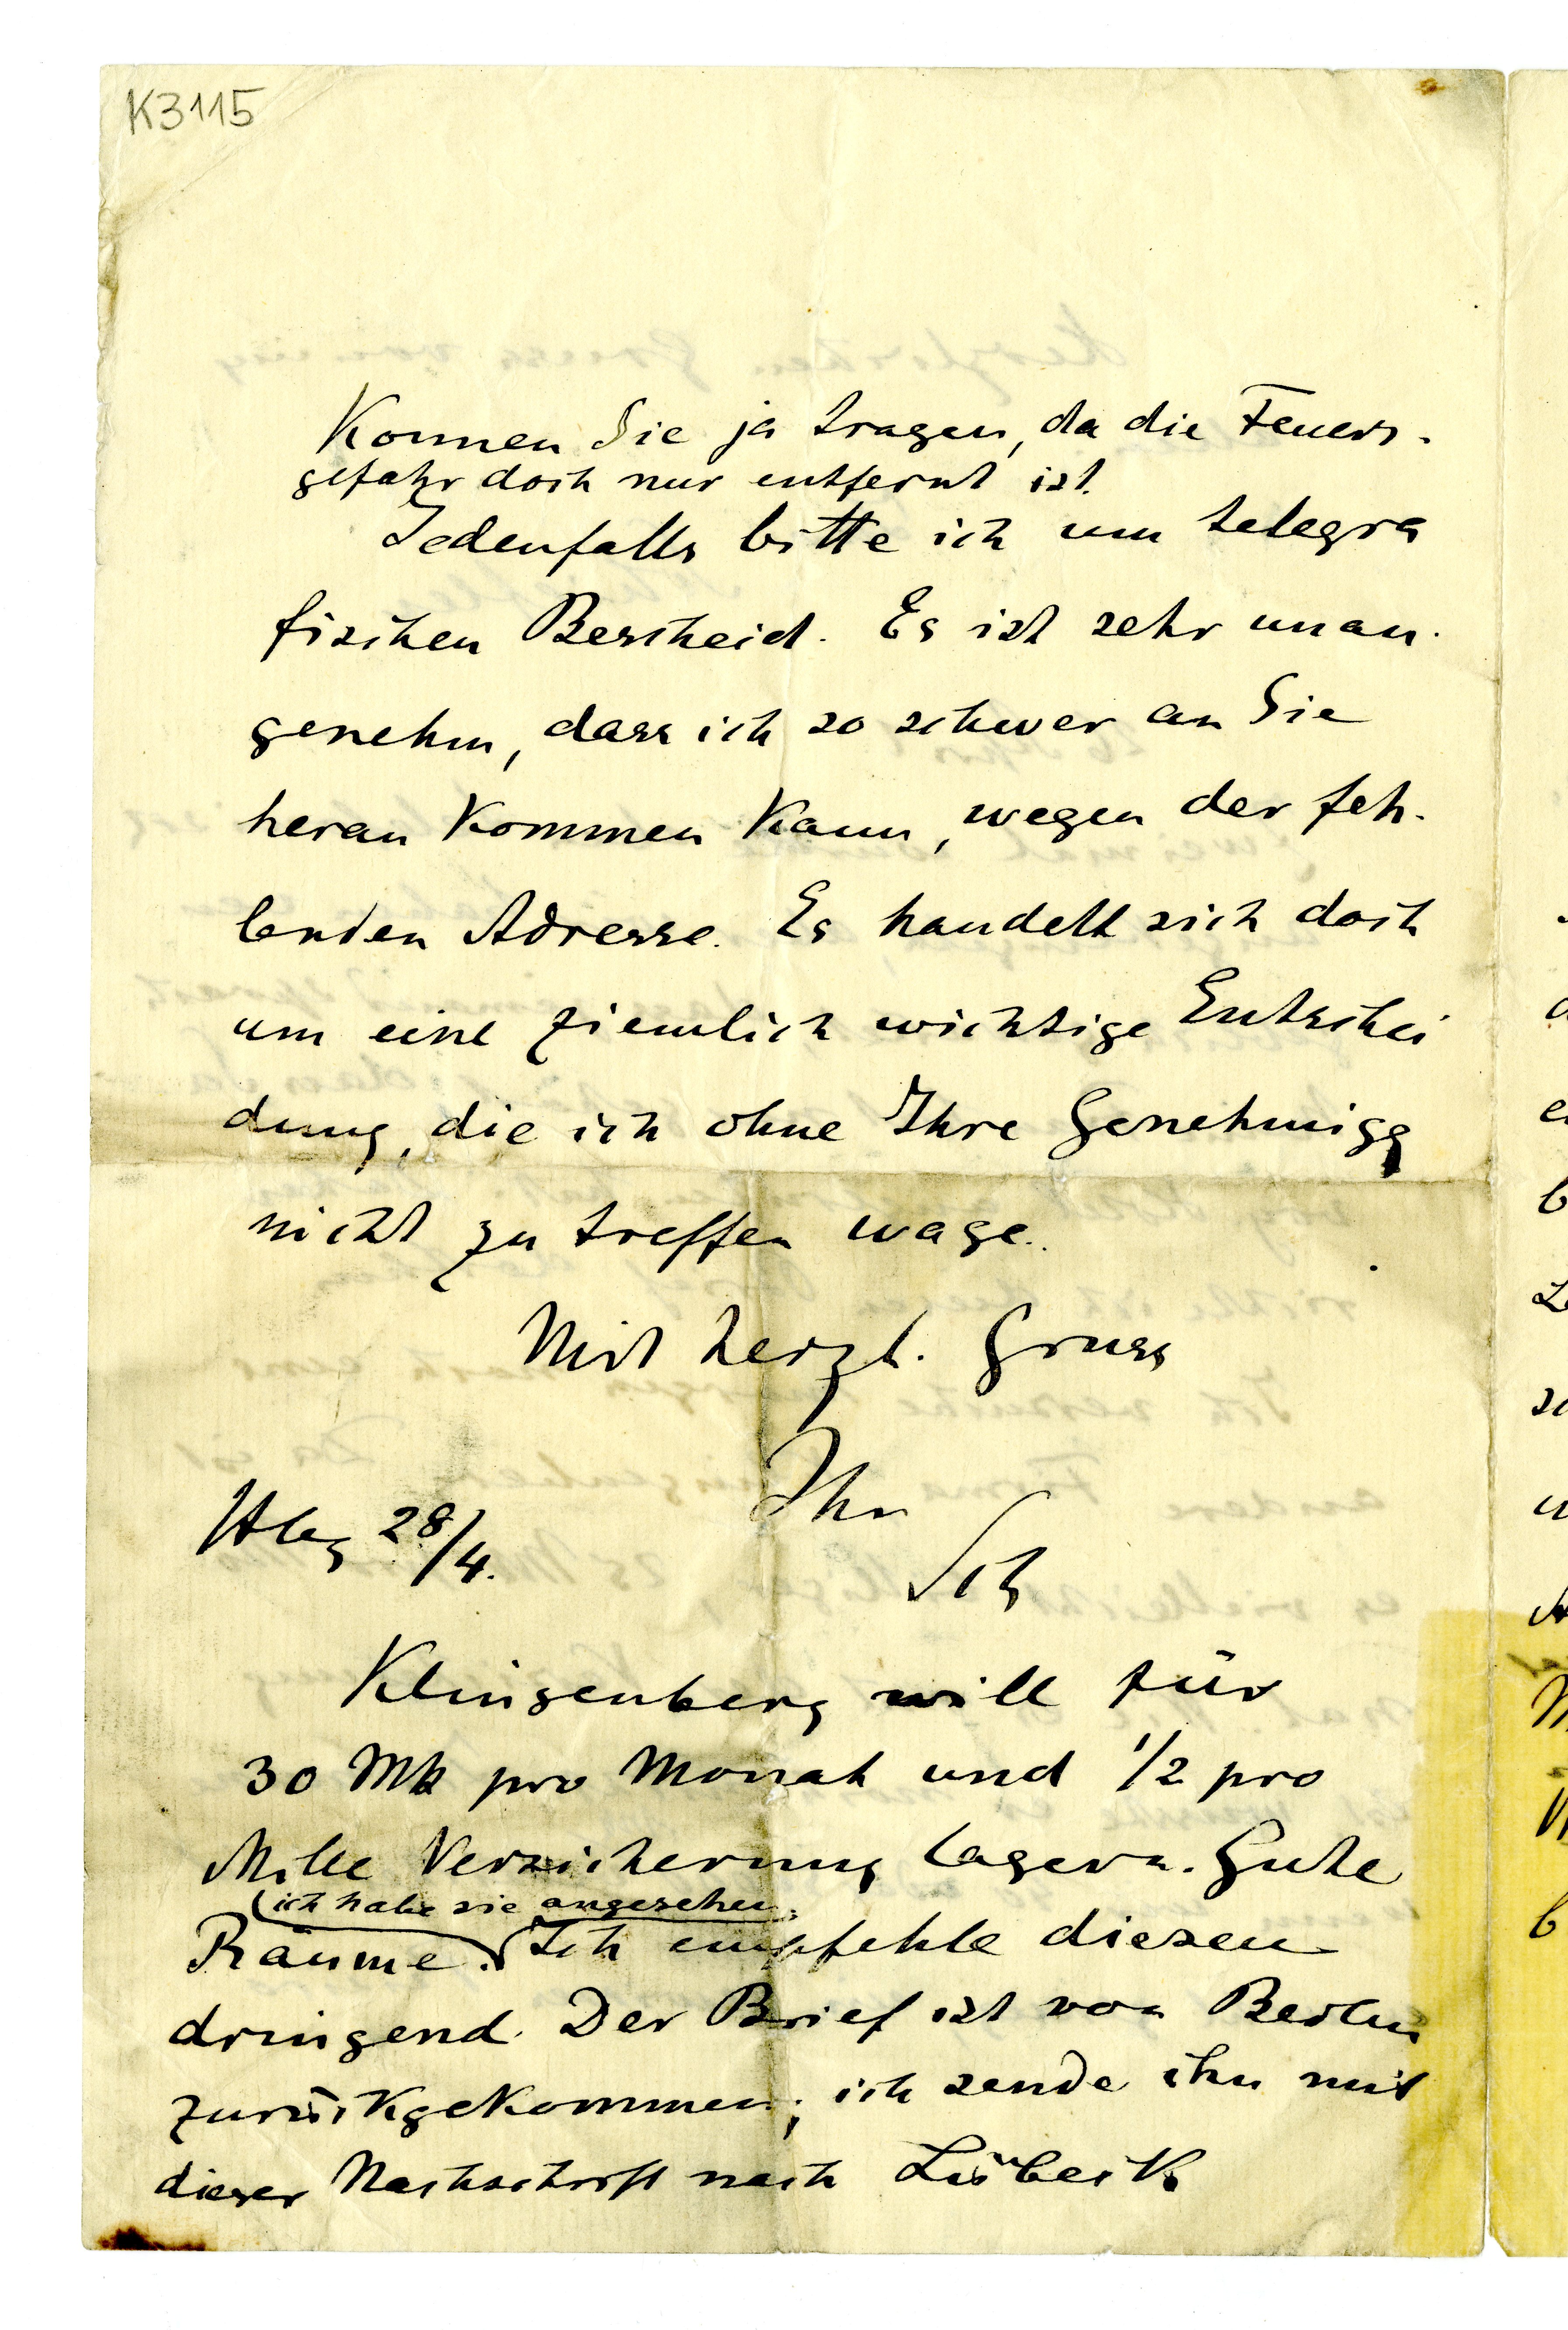 K3115
Konnen Sie ja tragen, da die Feuers-
gefahr doch nur entfernt ist.
Jedenfalls bitte ich um telegra
fischen Bescheid. Es ist sehr unan-
genehm, dass ich so schwer an Sie
heran kommen kann, wegen der feh-
lenden Adresse. Es handelt sich doch
um eine ziemlich wichtige Entschei
dung, die ich ohne Ihre Genehmigg
nicht zu treffen wage.
Mit herzl. Gruss
Ihr
Sch
Hbg 28/4.
Klingenberg will für
30 Mk pro Monat und 1/2 pro
Mille Versicherung lagern. Gute
(ich habe sie angesehen)
Räume. Ich empfehle diesen
dringend. Der Brief ist von Berlin
zurückgekommen; ich sende ihn mit
dieser Nachschrift nach Lübeck